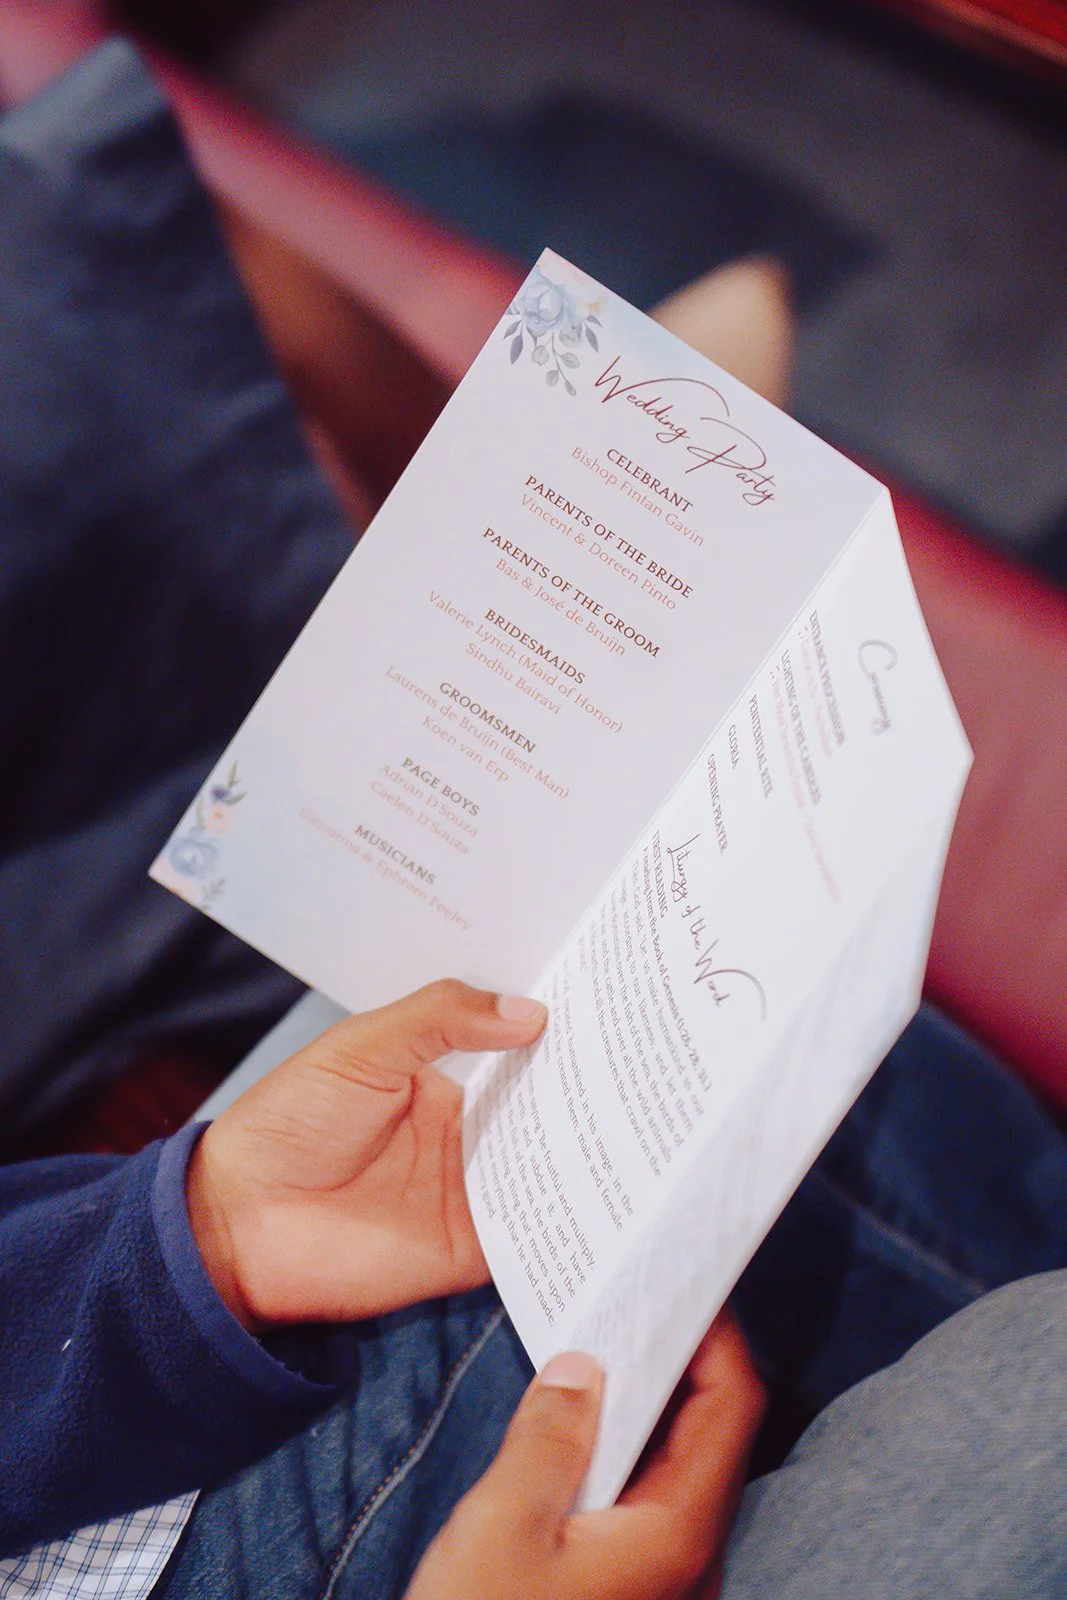 Wedding Party
CELEBRANT
Bishop Fintan Gavin
PARENTS OF THE BRIDE
Vincent & Doreen Pinto
PARENTS OF THE GROOM
Bas & José de Bruijn
BRIDESMAIDS
Valerie Lynch (Maid of Honor)
Sindhu Bairavi
GROOMSMEN
Laurens de Bruijn (Best Man)
Koen van Erp
PAGE BOYS
Adrian D'Souza
Caelen D'Souza
MUSICIANS
Giovanna & Ephrem Feeley
ENTRANCE PROCESSION
LIGHTING OF THE CANDLES
PENITENTIAL RITE
GLORIA
OPENING PRAYER
Liturgy of the Word
FIRST READING
A reading from the Book of Genesis (1:26-28, 31.)
"The God said, 'Let us make humankind in our
image, according to our likeness; and let them
have dominion over the fish of the sea, the birds of
the air, and the cattle and over all the wild animals
of the earth, and all the creatures that crawl on the
humankind in his image, in the
he created them; male and female
saying, 'Be fruitful and multiply,
earth and subdue it; and have
the fish of the sea, the birds of the
living thing that moves upon
everything that he had made,
very good.